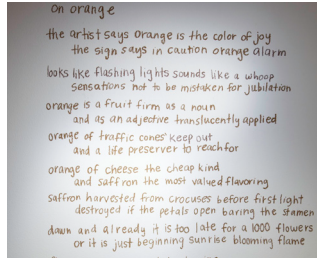 on orange
the artist says orange is the color of joy
the sign says in caution orange alarm
looks like flashing lights sounds like a whoop
sensations not to be mistaken for jubilation
orange is a fruit firm as a noun
and as an adjective translucently applied
orange of traffic cones' keep out
and a life preserver to reach for
orange of cheese the cheap kind
and saffron the most valued flavoring
saffron harvested from crocuses before first light
destroyed if the petals open baring the stamen
dawn and already it is too late for a 1000 flowers
or it is just beginning sunrise blooming flame